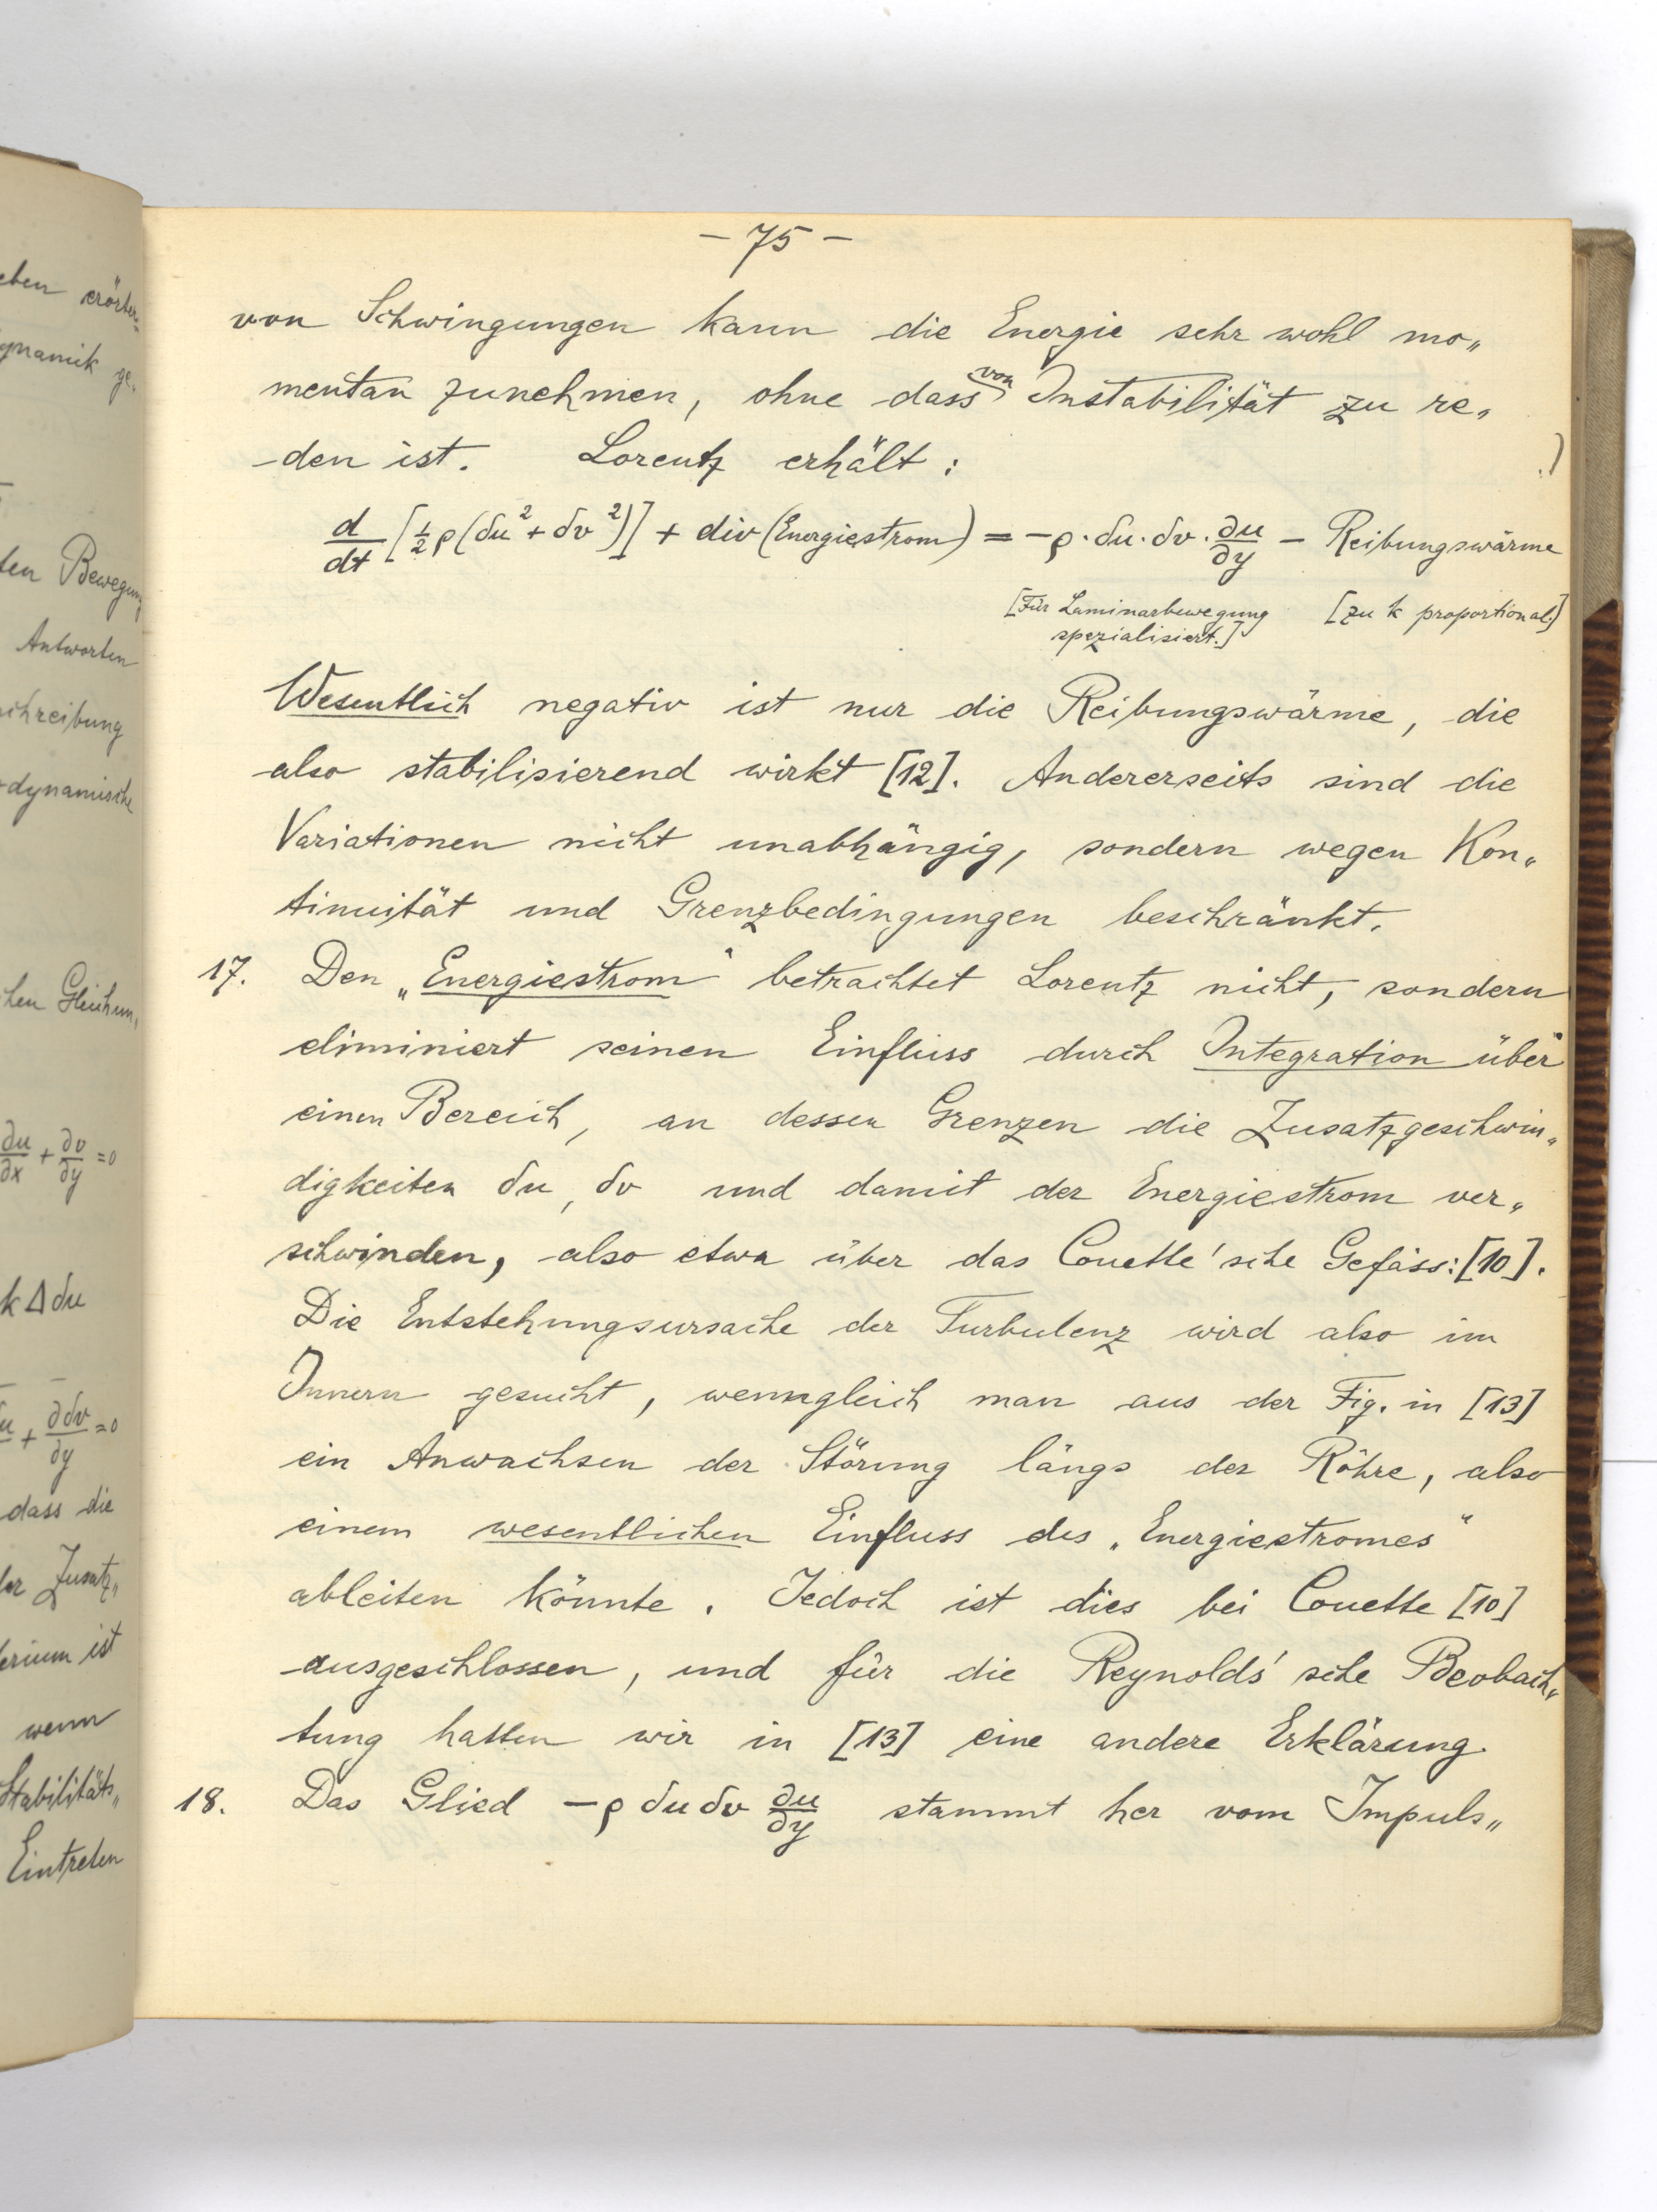 eben erörter=
ynamik ge„
ten Bewegung
Antworten
chreibung
dynamische
chen Gleichun„
∂u/∂x + ∂v/∂y = 0
k Δ δu
u + ∂δv/∂y = 0
dass die
der Zusatz„
terium ist
wenn
Stabilitäts„
Eintreten
– 75 –
von Schwingungen kann die Energie sehr wohl mo„
mentan zunehmen, ohne dass von Instabilität zu re„
den ist. Lorentz erhält :
d/dt [½ ρ (δu² + δv²)] + div (Energiestrom) = – ρ · δu · δv · ∂u/∂y – Reibungswärme
[Für Laminarbewegung [zu k proportional.]
spezialisiert.]
Wesentlich negativ ist nur die Reibungswärme, die
also stabilisierend wirkt [12]. Andererseits sind die
Variationen nicht unabhängig, sondern wegen Kon„
tinuität und Grenzbedingungen beschränkt.
17. Den „Energiestrom“ betrachtet Lorentz nicht, sondern
eliminiert seinen Einfluss durch Integration über
einen Bereich, an dessen Grenzen die Zusatzgeschwin„
digkeiten δu, δv und damit der Energiestrom ver„
schwinden, also etwa über das Couette'sche Gefäss: [10].
Die Entstehungsursache der Turbulenz wird also im
Innern gesucht, wenngleich man aus der Fig. in [13]
ein Anwachsen der Störung längs der Röhre, also
einem wesentlichen Einfluss des „Energiestromes“
ableiten könnte. Jedoch ist dies bei Couette [10]
ausgeschlossen, und für die Reynolds'sche Beobach„
tung hatten wir in [13] eine andere Erklärung.
18. Das Glied – ρ δu δv ∂u/∂y stammt her vom Impuls„